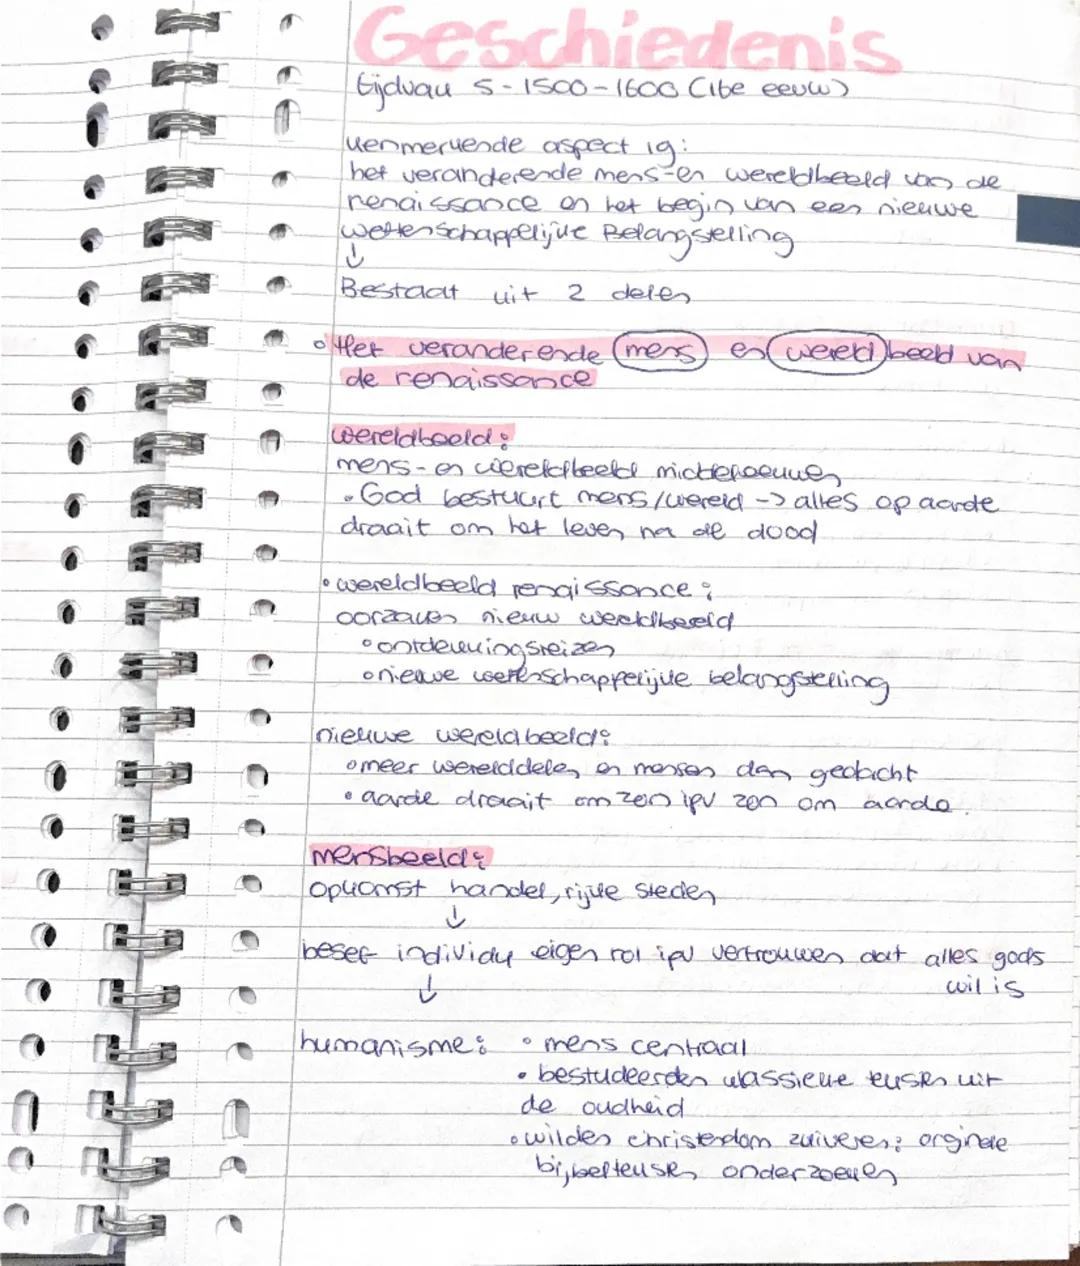 Geschiedenis
tijdvak 5 - 1500 - 1600 (16e eeuw)
kenmerkende aspect 19:
het veranderende mens-en wereldbeeld van de
renaissance en het begin van een nieuwe
wetenschappelijke Belangstelling
↓
Bestaat uit 2 delen
• Het veranderende mens en wereldbeeld van
de renaissance
wereldbeeld:
mens- en wereldbeeld middeleeuwen
• God bestuurt mens/wereld -> alles op aarde
draait om het leven na de dood
• wereldbeeld renaissance:
oorzaken nieuw wereldbeeld
• ontdekkingsreizen
• nieuwe wetenschappelijke belangstelling
nieuwe wereldbeeld:
• meer werelddelen en mensen dan gedacht
• aarde draait om zon ipv zon om aarde.
mensbeeld:
opkomst handel, rijke steden
↓
besef individu eigen rol ipv vertrouwen dat alles gods
wil is
↓
humanisme: • mens centraal
• bestudeerden klassieke teksten uit
de oudheid
• wilden christendom zuiveren: orginele
bijbelteksten onderzoeken